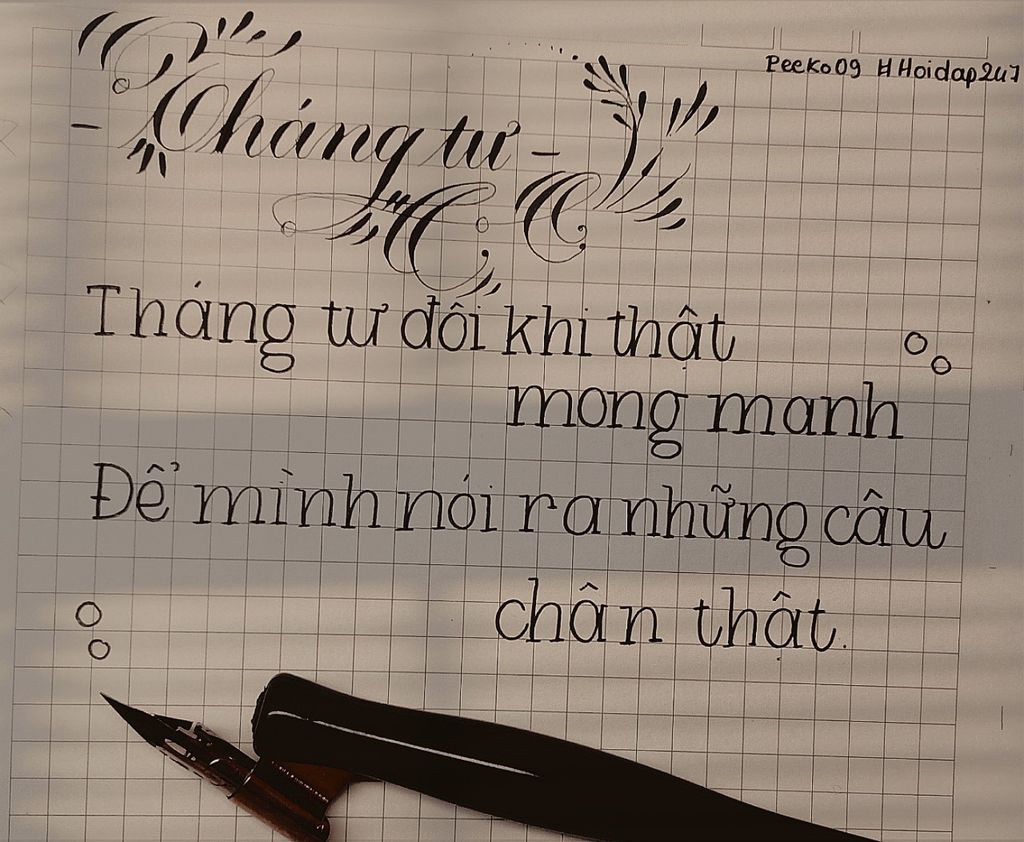 Peeko09 H Hoidap247
- Tháng tư -
Tháng tư đôi khi thật
mong manh
Để mình nói ra những câu
chân thật.